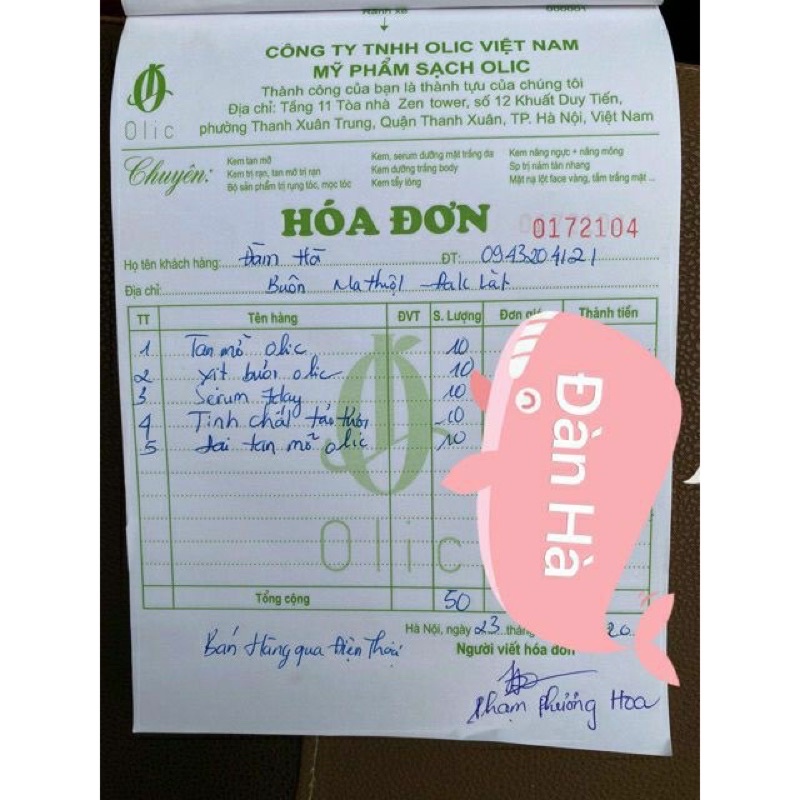 CÔNG TY TNHH OLIC VIỆT NAM
MỸ PHẨM SẠCH OLIC
Thành công của bạn là thành tựu của chúng tôi
Địa chỉ: Tầng 11 Tòa nhà Zen tower, số 12 Khuất Duy Tiến,
phường Thanh Xuân Trung, Quận Thanh Xuân, TP. Hà Nội, Việt Nam
Olic
Chuyên:
Kem tan mỡ
Kem trị rạn, tan mỡ trị rạn
Bộ sản phẩm trị rụng tóc, mọc tóc
Kem, serum dưỡng mặt trắng da
Kem dưỡng trắng body
Kem tẩy lông
Kem nâng ngực + nâng mông
Sp trị nám tàn nhang
Mặt nạ lột face vàng, tắm trắng mặt ...
HÓA ĐƠN 0172104
Họ tên khách hàng: Đàm Hà ĐT: 0943204121
Địa chỉ: Buôn Ma thuột - Đak Lăk
TT Tên hàng ĐVT S. Lượng Đơn giá Thành tiền
1 Tan mỡ Olic 10
2 Xịt bưởi olic 10
3 Serum 7day 10
4 Tinh chất 10
5 Đai tan mỡ olic 10
Olic
Tổng cộng 50
Hà Nội, ngày 23 thán 20
Bán Hàng qua Điện Thoại
Người viết hóa đơn
Phạm Phương Hoa
Đàn Hà